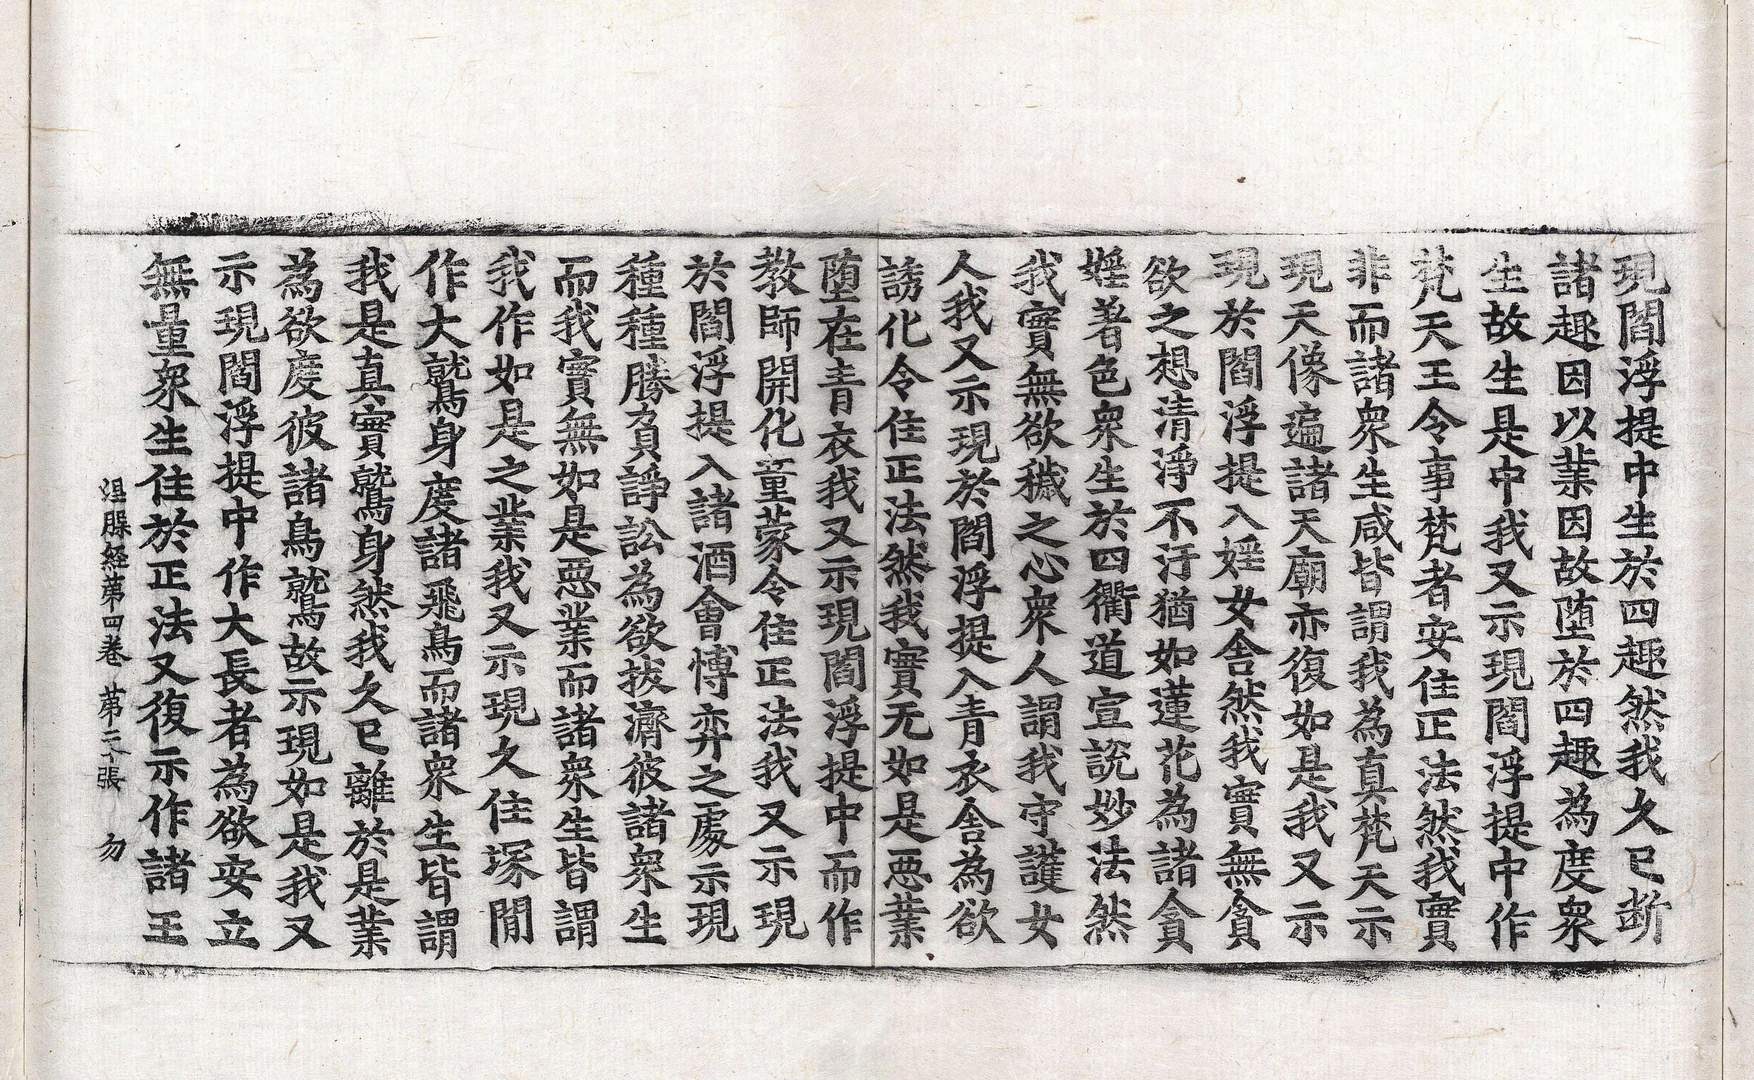 現閻浮提中生於四趣然我久已斷
諸趣因以業因故墮於四趣為度衆
生故生是中我又示現閻浮提中作
梵天王令事梵者安住正法然我實
非而諸衆生咸皆謂我為真梵天示
現天像遍諸天廟亦復如是我又示
現於閻浮提入婬女舍然我實無貪
欲之想清淨不汙猶如蓮花為諸貪
婬著色衆生於四衢道宣說妙法然
我實無欲穢之心衆人謂我守護女
人我又示現於閻浮提入青衣舍為欲
誘化令住正法然我實无如是惡業
墮在青衣我又示現閻浮提中而作
教師開化童蒙令住正法我又示現
於閻浮提入諸酒會博弈之處示現
種種勝負諍訟為欲拔濟彼諸衆生
而我實無如是惡業而諸衆生皆謂
我作如是之業我又示現久住塚間
作大鷲身度諸飛鳥而諸衆生皆謂
我是真實鷲身然我久已離於是業
為欲度彼諸鳥鷲故示現如是我又
示現閻浮提中作大長者為欲安立
無量衆生住於正法又復示作諸王
涅槃經第四卷 第二十張 勿